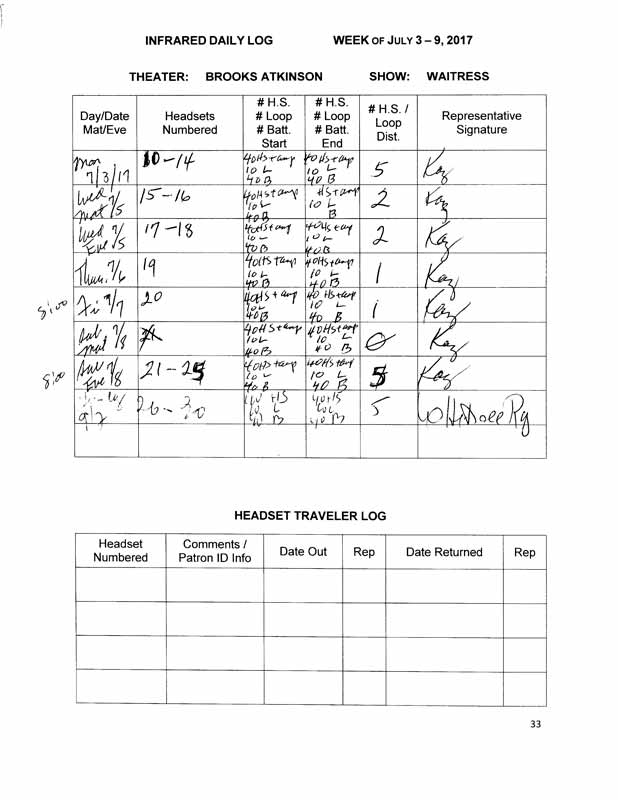 INFRARED DAILY LOG WEEK OF JULY 3 – 9, 2017
THEATER: BROOKS ATKINSON SHOW: WAITRESS
Day/Date
Mat/Eve
Headsets
Numbered
# H.S.
# Loop
# Batt.
Start
# H.S.
# Loop
# Batt.
End
# H.S. /
Loop
Dist.
Representative
Signature
Mon
7/3/17
10-14
40HS
10 L
40B
40HS
10 L
40 B
5
Kaz
Wed 7/5
mat
15-16
40HS
10 L
40B
HS
10 L
B
2
Kaz
Wed 7/5
Eve
17-18
40HS
10 L
40B
40HS
10 L
40B
2
Kaz
Thur. 7/6
19
40HS
10 L
40B
40HS
10 L
40B
1
Kaz
8:00
Fri 7/7
20
40HS
10L
40B
40 HS
10 L
40 B
1
Kaz
Sat 7/8
mat
40HS
10L
40B
40HS
10 L
40 B
0
Kaz
8:00
Sat 7/8
Eve
21-25
40HS
10 L
40 B
40HS
10 L
40 B
5
Kaz
26-30
40 HS
10 L
40 B
40HS
10L
40 B
5
HEADSET TRAVELER LOG
Headset
Numbered
Comments /
Patron ID Info
Date Out
Rep
Date Returned
Rep
33